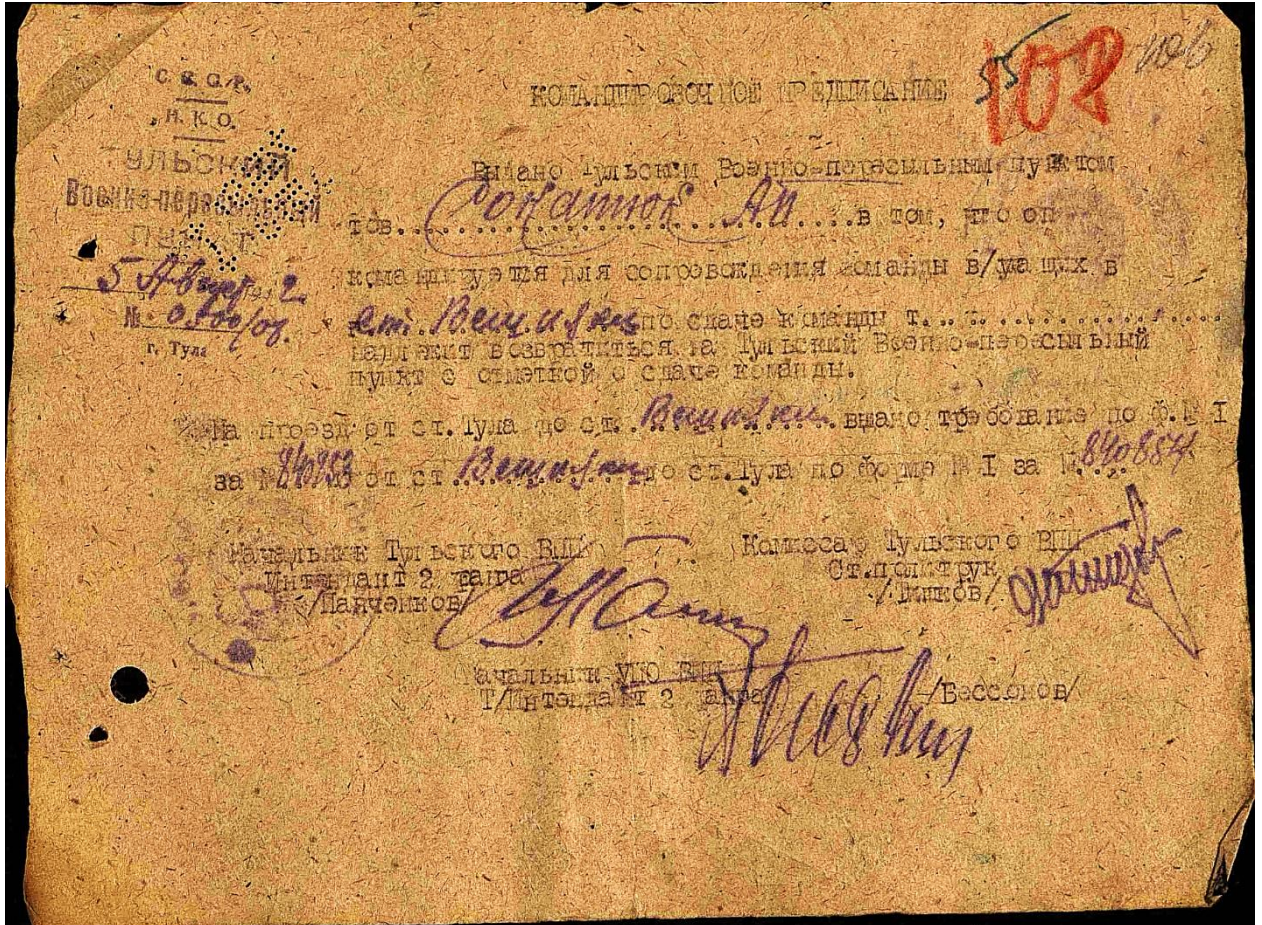 С.С.С.Р.
Н.К.О.
ТУЛЬСКИЙ
Военно-пересыльный
ПУНКТ
5 Август 2
№
г. Тула
55 102
КОМАНДИРОВОЧНОЕ ПРЕДПИСАНИЕ
Выдано Тульским Военно-пересыльным пунктом
тов. в том, что он
командируется для сопровождения команды в/уащих в
ст. Вешняки по сдаче команды т.
надлежит возвратиться на Тульский Военно-пересыльный
пункт с отметкой о сдаче команды.
На проезд от ст. Тула до ст. Вешняки выдано требование по ф.№ I
за № 840853 от ст Вешняки до ст.Тула по форме № I за № 840854
Начальник Тульского ВПП
Интендант 2 ранга
/Панченков/
Комиссар Тульского ВПП
Ст.политрук
/Тишков/
Начальник ВПП
Т/Интендант 2 ранга /Бессонов/